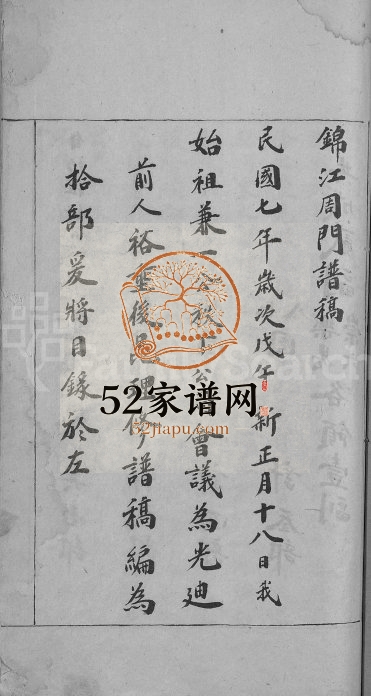 錦江周門譜稿
民國七年歲次戊午新正月十八日我
始祖兼一公秩下公會議為光廸
前人裕後譜稿編為
拾部爰將目錄於左
52家谱网
52jiapu.com